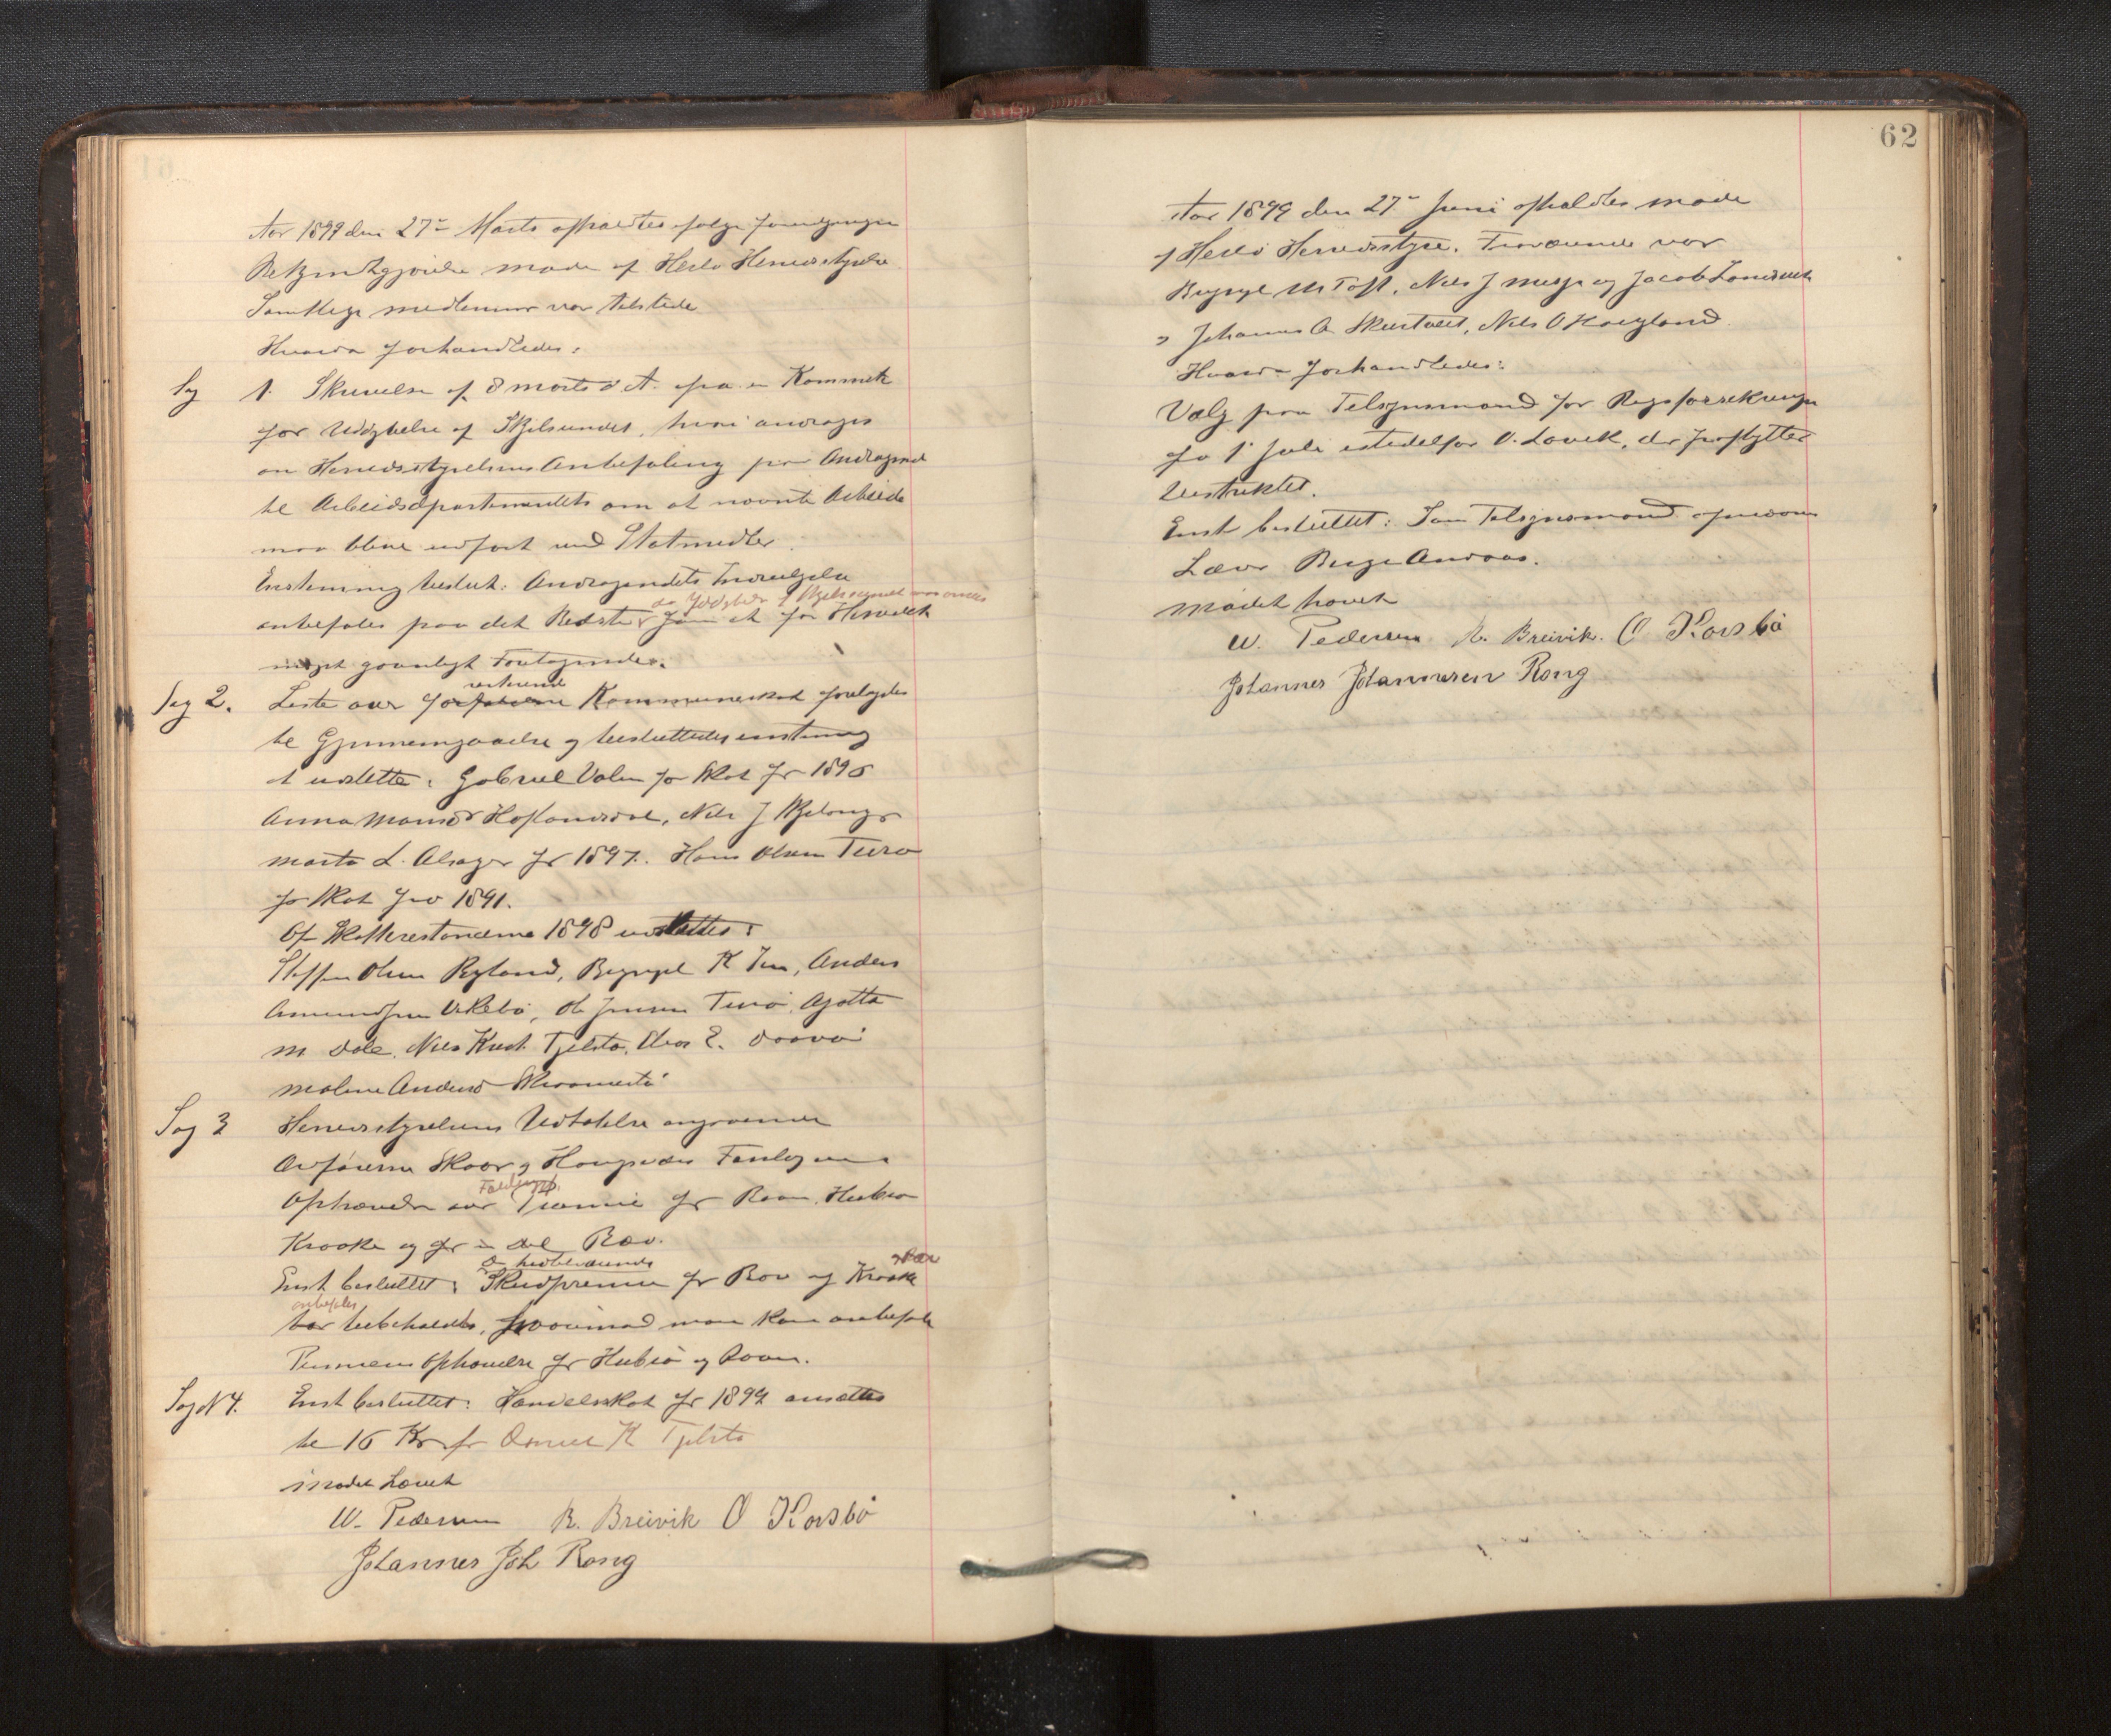 Aar 1899 den 27de Marts afholdtes ifølge foregaaende
Bekjendtgjørelse møde af Herlø Herredsstyrelse
Samtlige medlemmer var tilstede
Hvorda forhandledes:
Sag 1. Skrivelse af 8 marts d. A. fra en Kommite
for Uddybelse af Skjelsundet, hvori andrages
om Herredsstyrelsens Anbefaling paa Andragende
til Arbeidsdepartementet om at nævnte Arbeide
maa blive udført med Statsmidler.
Enstemmig besluttet: Andragendets Indvilgelse
anbefales paa det Bedste som et for Herredet
meget gavnligt Foretagende.
Sag 2. Liste over resterende Kommuneskat forelagdes
til Gjennemgaaelse og besluttedes enstemmig
at udslette: Gabriel Valen for Skat for 1896
Anna Monsd Hoflandsdal, Nils J Skjelanger
Marta L. Alsager for 1897. Hans Olsen Turø
for Skat for 1891.
Af Skatterestancerne 1898 udslettes:
Steffen Olsen Ryland, Brynjel K Ten, Anders
Amundsen Vikebø, Ole Jensen Turø, Agatta
M Dale, Nils Knut Tjelsto, Elias E.
Maline Andersd Skrammestø
Sag 3 Herredsstyrelsens Udtalelse angaaende
Skoor og Haugsvær
Ophævelse av Fældings Præmie for Ravn, Hubro
Kraake og for en Del Ræv.
Enst besluttet: De nuværende Skudpræmier for Ræv og Kraake
anbefales bibeholdte, hvorimod man kan anbefale
Præmiens Ophævelse for Hubro og Ravn.
Sag N 4. Enst besluttet: Handelsskat for 1899 ansættes
til 16 Kr for K Tjelsto
Mødet hævet
W. Pedersen R. Breivik O Korsbø
Johannes Joh Rong
62
Aar 1899 den 27de Juni afholdtes møde
af Herlø Herredsstyre. Fraværende var
Brynjel M Toft, Nils J Misje og Jacob Landsvik
Johannes A Skurtveit, Nils O Haugland
Hvorda forhandledes:
Valg paa Tilsynsmand for Rigsforsikringen
fra 1 Juli istedetfor O. Løvik, der fraflytter
Distriktet.
Enst besluttet: Som Tilsynsmand opnævnes
Lærer Birge Andraas.
Mødet hævet
W. Pedersen R. Breivik. O Korsbø
Johannes Johannesen Rong